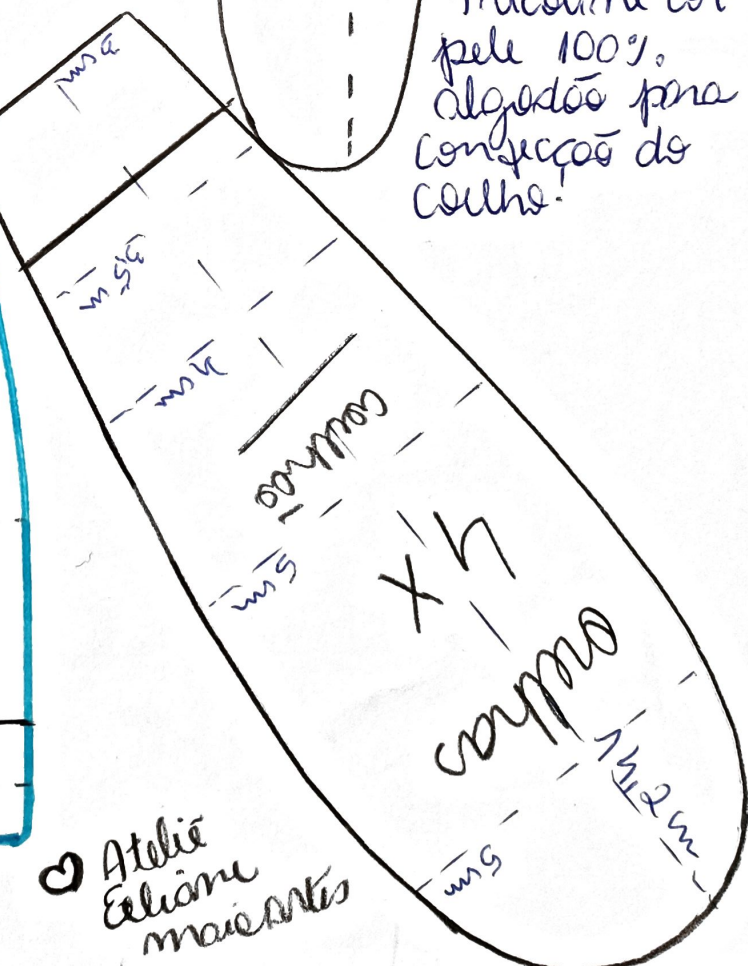 pele 100%
algodão para
confecção do
coelho!
3cm
3,5cm
4cm
coelhão
5cm
4x
orelhas
14,2cm
5cm
Ateliê
Eliane
maia artes